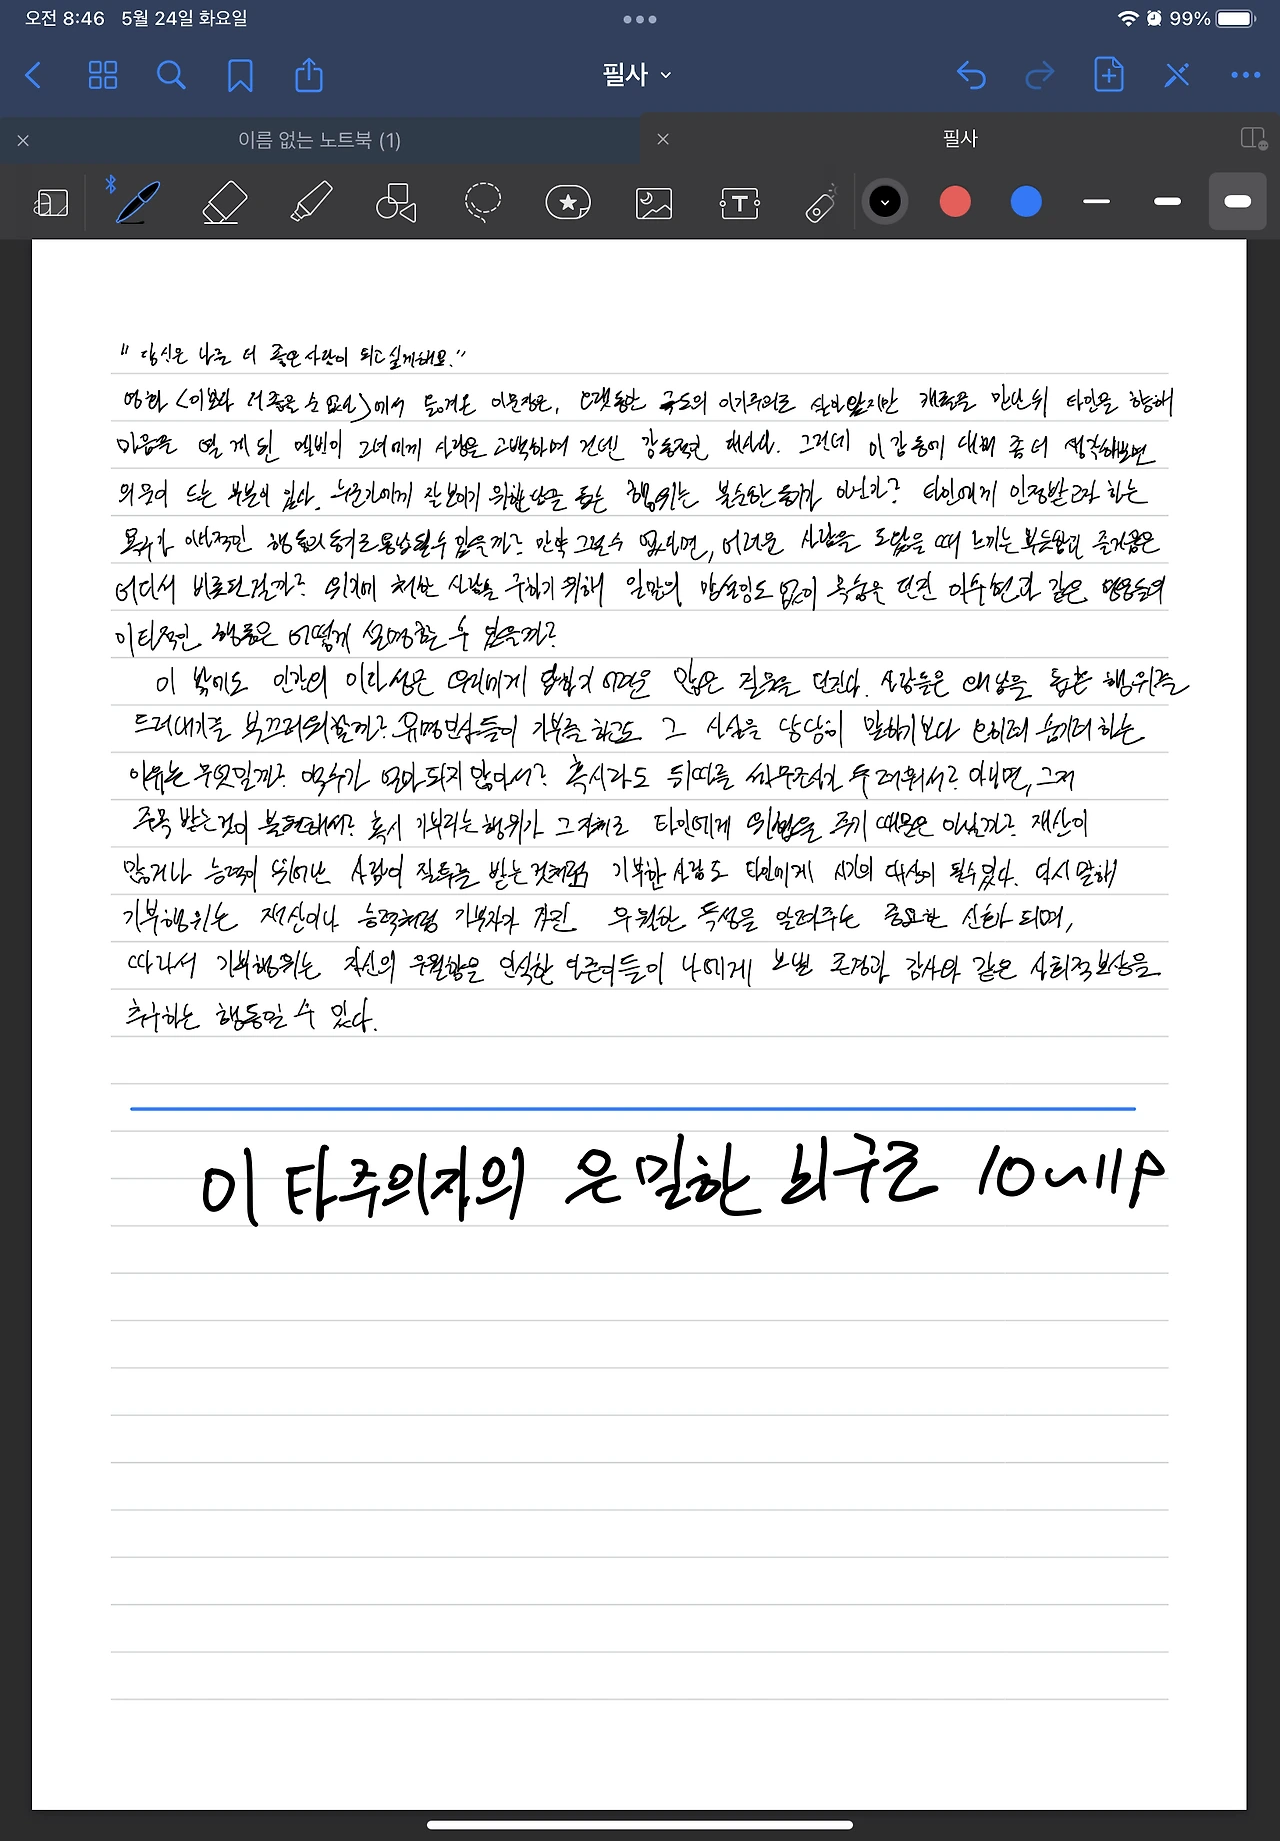 오전 8:46 5월 24일 화요일
99%
필사
이름 없는 노트북 (1)
필사
T
"당신은 나를 더 좋은 사람이 되고 싶게해요."
영화 <이보다 더 좋을 순 없다>에서 등장하는 이 문장은, 오랫동안 극도의 이기주의로 살아왔지만 캐롤을 만난 뒤 타인을 향해
마음을 열게 된 멜빈이 그녀에게 사랑을 고백하며 건넨 감동적인 대사다. 그런데 이 감동에 대해 좀 더 생각해보면
의문이 드는 부분이 있다. 누군가에게 잘 보이기 위한 행위는 불순한 동기가 아닌가? 타인에게 인정받고자 하는
욕구가 이타적인 행동의 동기로 용납될 수 있을까? 만약 그럴 수 없다면, 어려운 사람을 도왔을 때 느끼는 뿌듯함과 즐거움은
어디서 비롯된 걸까? 위기에 처한 사람을 구하기 위해 일말의 망설임도 없이 목숨을 던진 이수현과 같은 영웅들의
이타적인 행동은 어떻게 설명할 수 있을까?
이 밖에도 인간의 이타성은 우리에게 답하기 어려운 많은 질문을 던진다. 사람들은 왜 남을 돕는 행위를
드러내기를 부끄러워할까? 유명인사들이 기부를 하고도 그 사실을 당당히 말하기보다 오히려 숨기려 하는
이유는 무엇일까? 액수가 얼마 되지 않아서? 혹시라도 뒤따를 세무조사가 두려워서? 아니면, 그저
주목 받는 것이 불편해서? 혹시 기부라는 행위가 그 자체로 타인에게 위협을 주기 때문은 아닐까? 재산이
많거나 능력이 뛰어난 사람이 질투를 받는 것처럼 기부한 사람도 타인에게 시기의 대상이 될 수 있다. 다시 말해
기부행위는 재산이나 능력처럼 기부자가 가진 우월한 특성을 알려주는 중요한 신호가 되며,
따라서 기부행위는 자신의 우월함을 인식한 주변이들이 나에게 보낼 존경과 감사와 같은 사회적 보상을
추구하는 행동일 수 있다.
이타주의자의 은밀한 뇌구조 10~11p